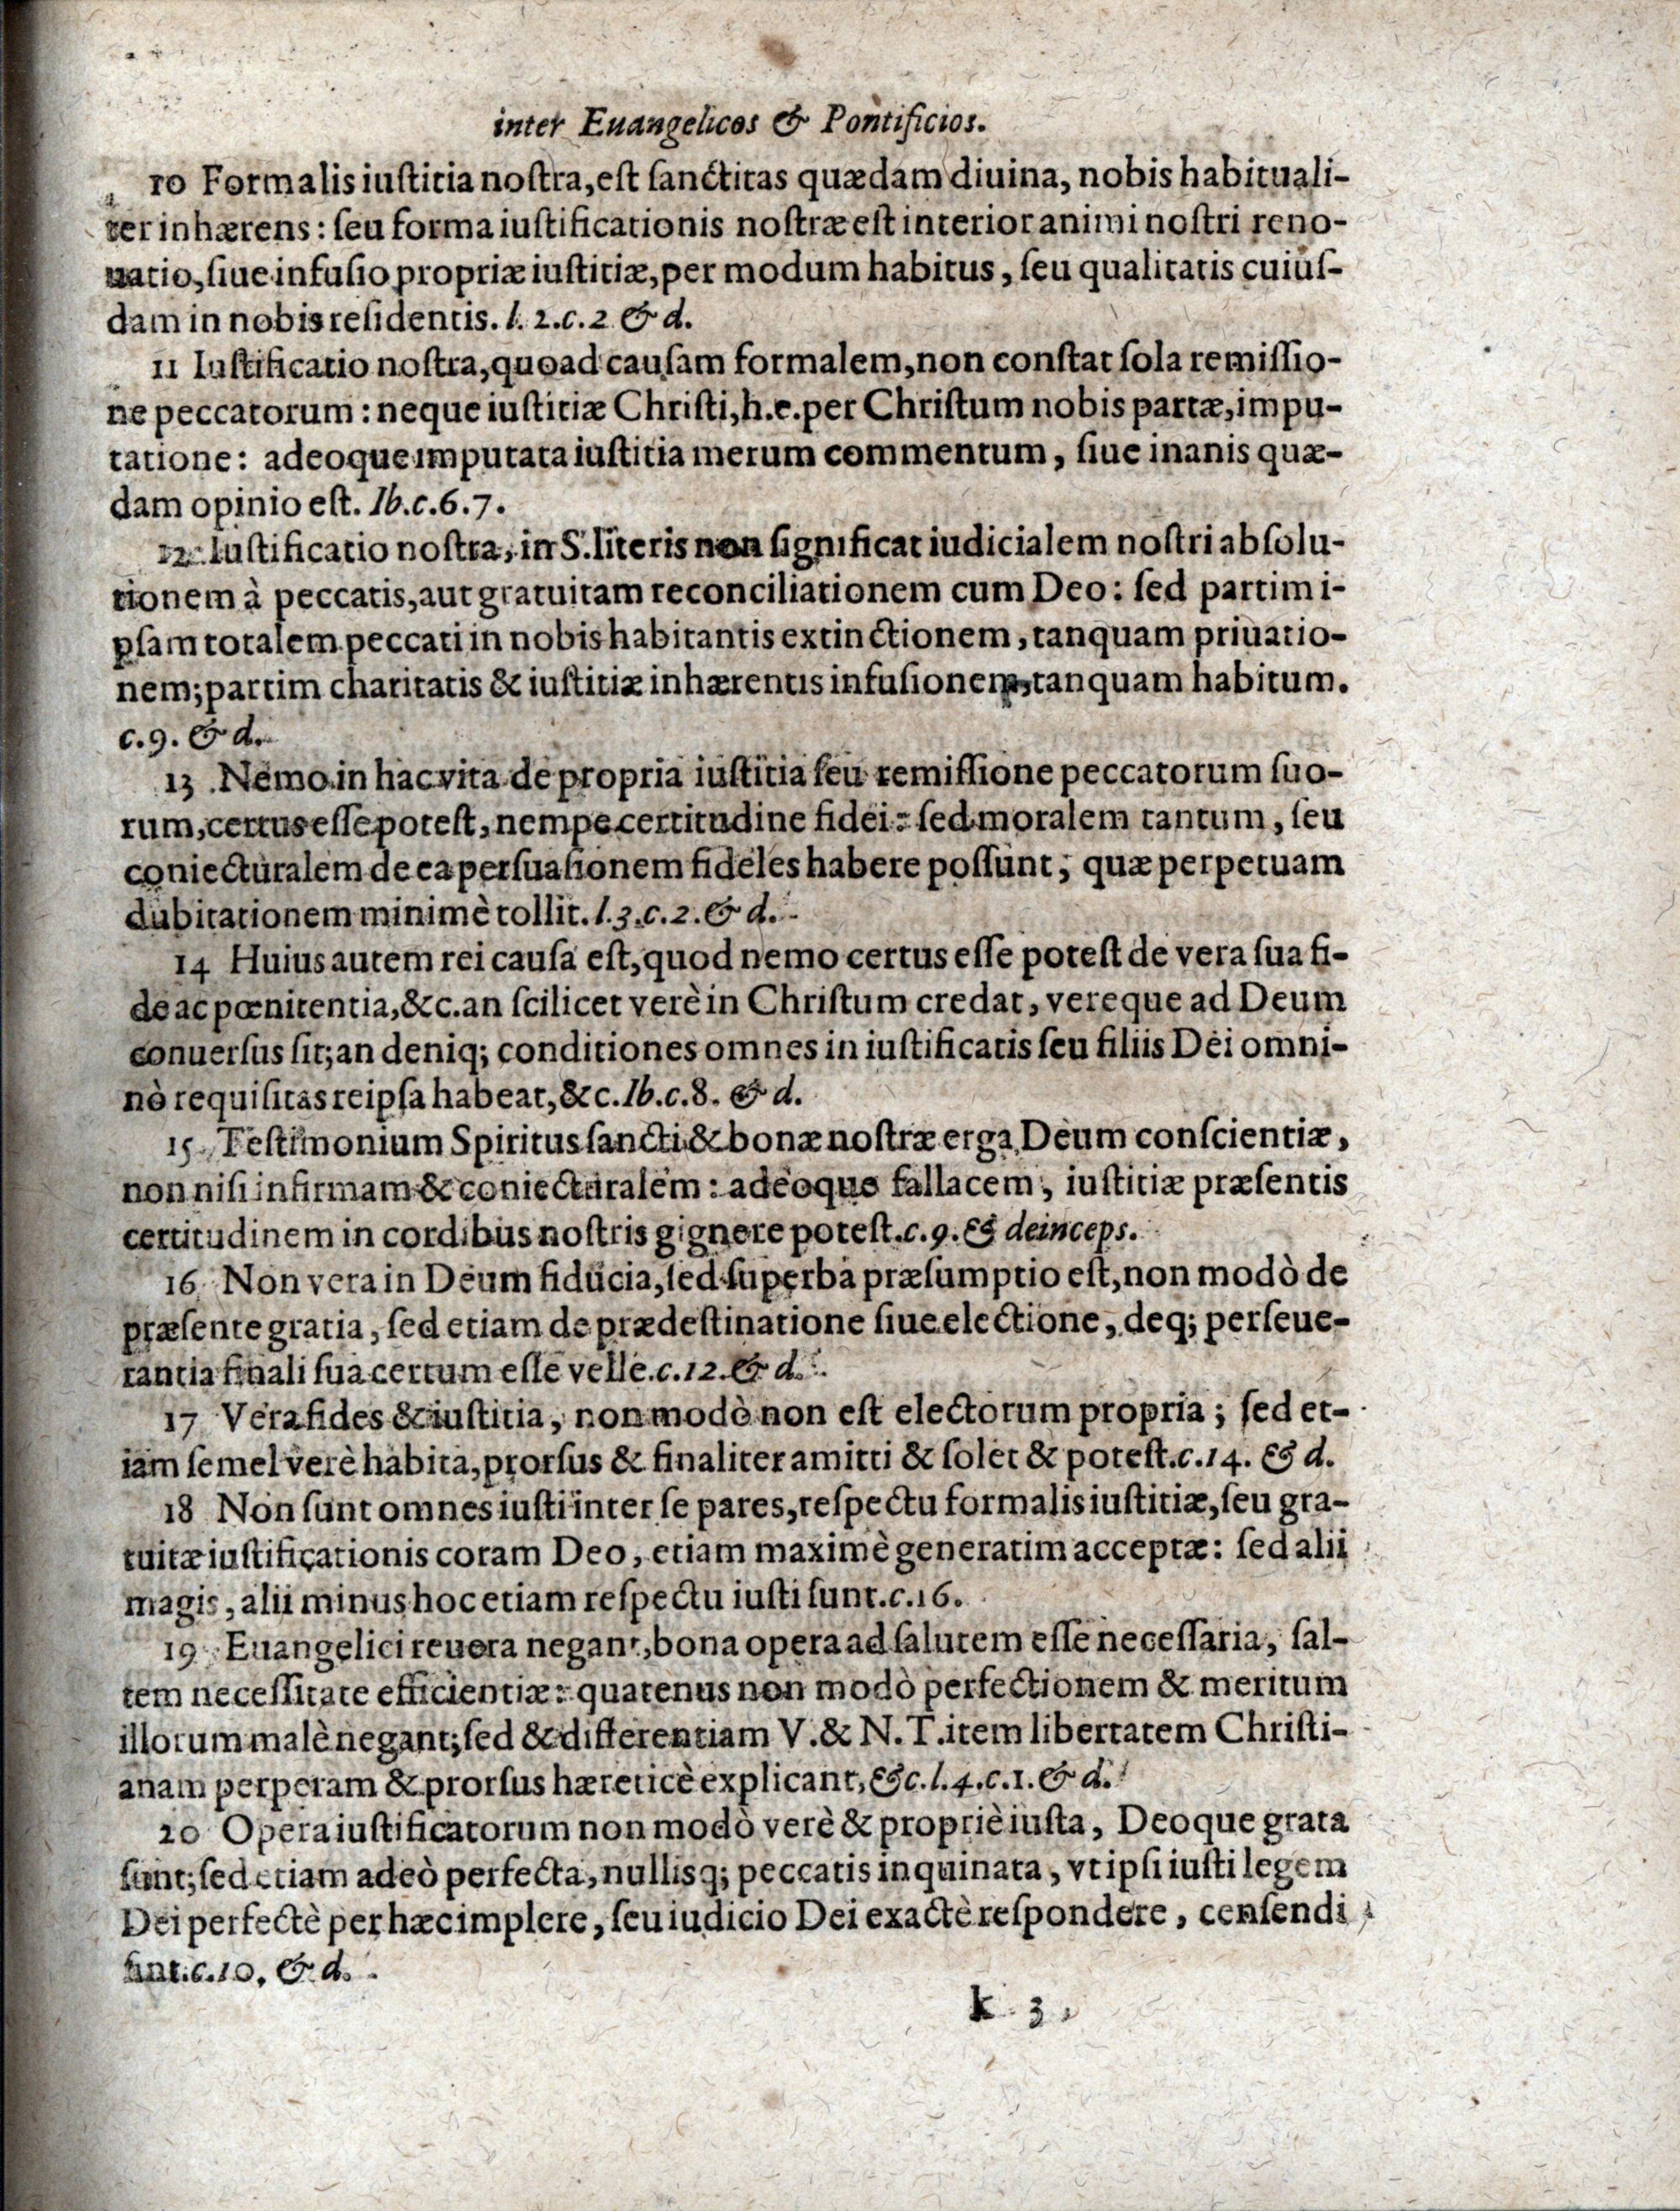 inter Euangelicos & Pontificios.
10 Formalis iuſtitia noſtra, eſt ſanctitas quædam diuina, nobis habituali-
ter inhærens: ſeu forma iuſtificationis noſtræ eſt interior animi noſtri reno-
uatio, ſiue infuſio propriæ iuſtitiæ, per modum habitus, ſeu qualitatis cuiuſ-
dam in nobis reſidentis. l. 2. c. 2 & d.
11 Iuſtificatio noſtra, quoad cauſam formalem, non conſtat ſola remiſſio-
ne peccatorum: neque iuſtitiæ Chriſti, h.e. per Chriſtum nobis partæ, impu-
tatione: adeoque imputata iuſtitia merum commentum, ſiue inanis quæ-
dam opinio eſt. Ib. c. 6. 7.
12 Iuſtificatio noſtra, in S. literis non ſignificat iudicialem noſtri abſolu-
tionem à peccatis, aut gratuitam reconciliationem cum Deo: ſed partim i-
pſam totalem peccati in nobis habitantis extinctionem, tanquam priuatio-
nem; partim charitatis & iuſtitiæ inhærentis infuſionem, tanquam habitum.
c. 9. & d.
13 Nemo in hac vita de propria iuſtitia ſeu remiſſione peccatorum ſuo-
rum, certus eſſe poteſt, nempe certitudine fidei: ſed moralem tantum, ſeu
coniecturalem de ea perſuaſionem fideles habere poſſunt; quæ perpetuam
dubitationem minimè tollit. l. 3. c. 2. & d.
14 Huius autem rei cauſa eſt, quod nemo certus eſſe poteſt de vera ſua fi-
de ac pœnitentia, &c. an ſcilicet verè in Chriſtum credat, vereque ad Deum
conuerſus ſit; an deniq; conditiones omnes in iuſtificatis ſeu filiis Dei omni-
nò requiſitas reipſa habeat, &c. Ib. c. 8. & d.
15 Teſtimonium Spiritus ſancti & bonæ noſtræ erga Deum conſcientiæ,
non niſi infirmam & coniecturalem: adeoque fallacem, iuſtitiæ præſentis
certitudinem in cordibus noſtris gignere poteſt. c. 9. & deinceps.
16 Non vera in Deum fiducia, ſed ſuperba præſumptio eſt, non modò de
præſente gratia, ſed etiam de prædeſtinatione ſiue electione, deq; perſeue-
rantia finali ſua certum eſſe velle. c. 12. & d.
17 Vera fides & iuſtitia, non modò non eſt electorum propria; ſed et-
iam ſemel verè habita, prorſus & finaliter amitti & ſolet & poteſt. c. 14. & d.
18 Non ſunt omnes iuſti inter ſe pares, reſpectu formalis iuſtitiæ, ſeu gra-
tuitæ iuſtificationis coram Deo, etiam maximè generatim acceptæ: ſed alii
magis, alii minus hoc etiam reſpectu iuſti ſunt. c. 16.
19 Euangelici reuera negant, bona opera ad ſalutem eſſe neceſſaria, ſal-
tem neceſſitate efficientiæ: quatenus non modò perfectionem & meritum
illorum malè negant; ſed & differentiam V. & N. T. item libertatem Chriſti-
anam perperam & prorſus hæreticè explicant, &c. l. 4. c. 1. & d.
20 Opera iuſtificatorum non modò verè & propriè iuſta, Deoque grata
ſunt; ſed etiam adeò perfecta, nullisq; peccatis inquinata, vt ipſi iuſti legem
Dei perfectè per hæc implere, ſeu iudicio Dei exactè reſpondere, cenſendi
ſint. c. 10. & d.
k 3